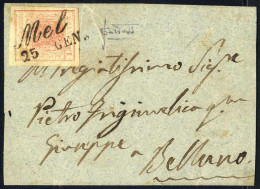 Mel
25 GEN.
All' Pregiatissimo Sigr
Pietro Frigimelica qm
Giuseppe a
Belluno.